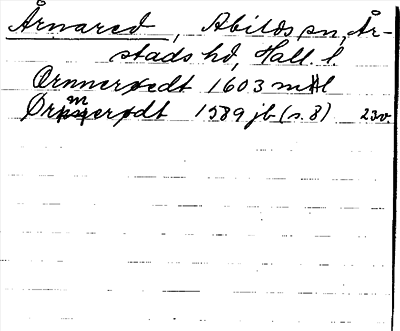 Årnared, Abilds sn, År-
stads hd, Hall. l.
Ørnnerøedt 1603 mtl
Ørnerødt 1589 jb (s. 8) 23v.